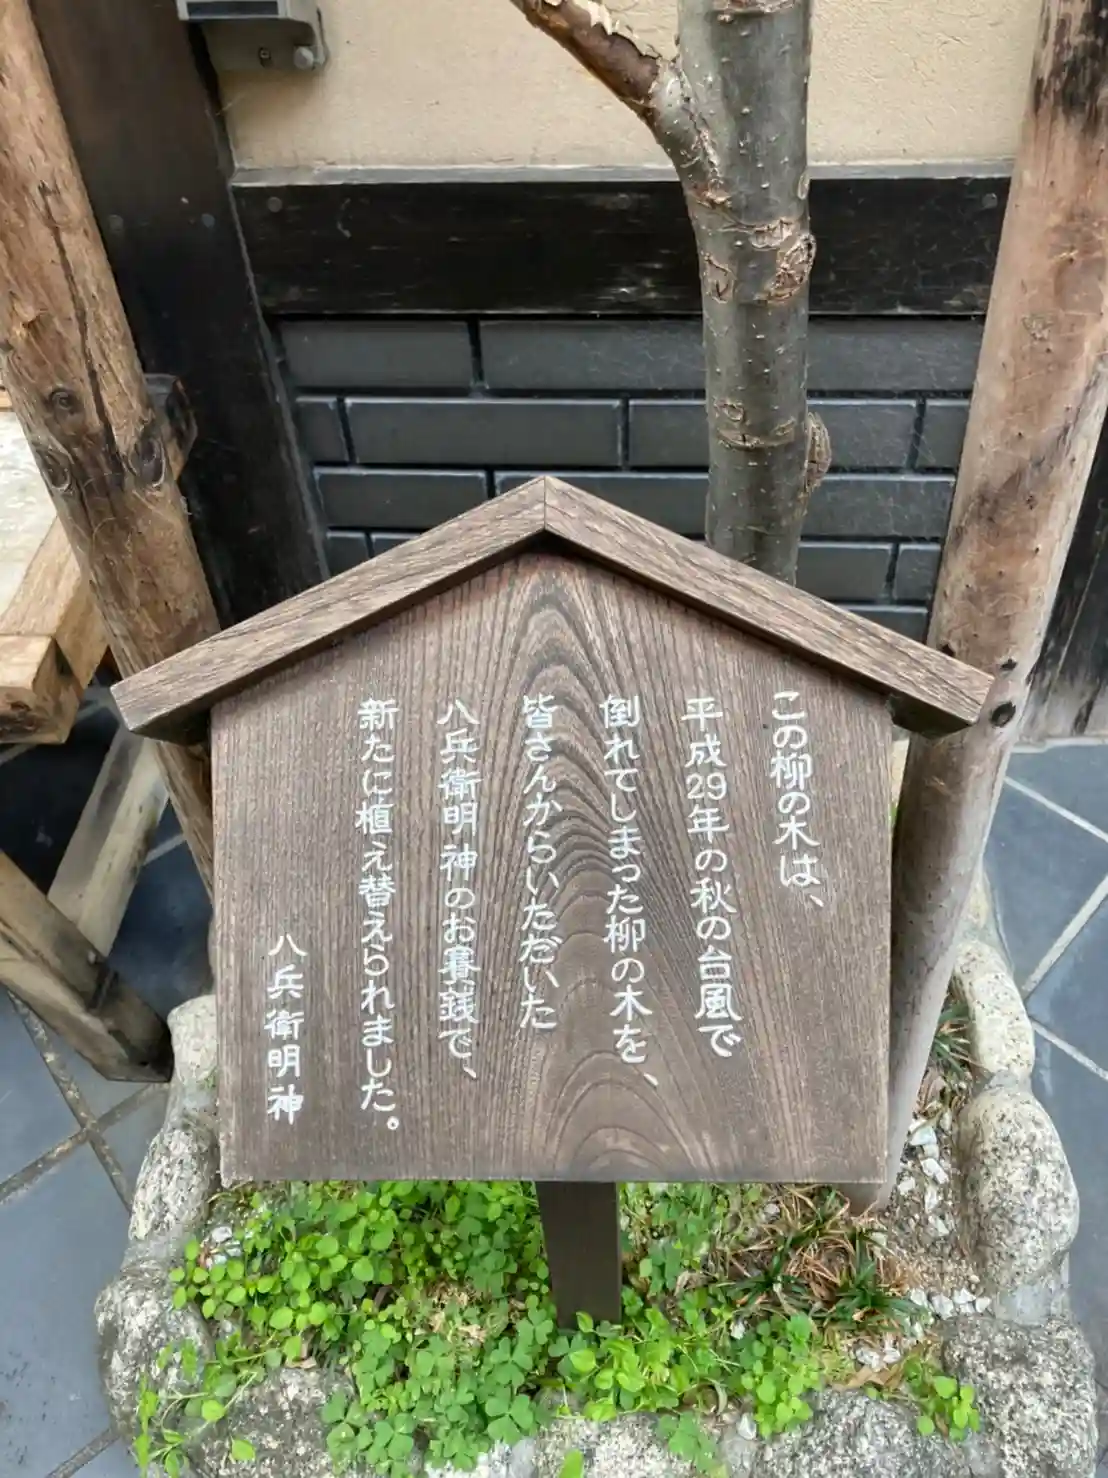 この柳の木は、
平成29年の秋の台風で
倒れてしまった柳の木を、
皆さんからいただいた
八兵衛明神のお賽銭で、
新たに植え替えられました。
八兵衛明神